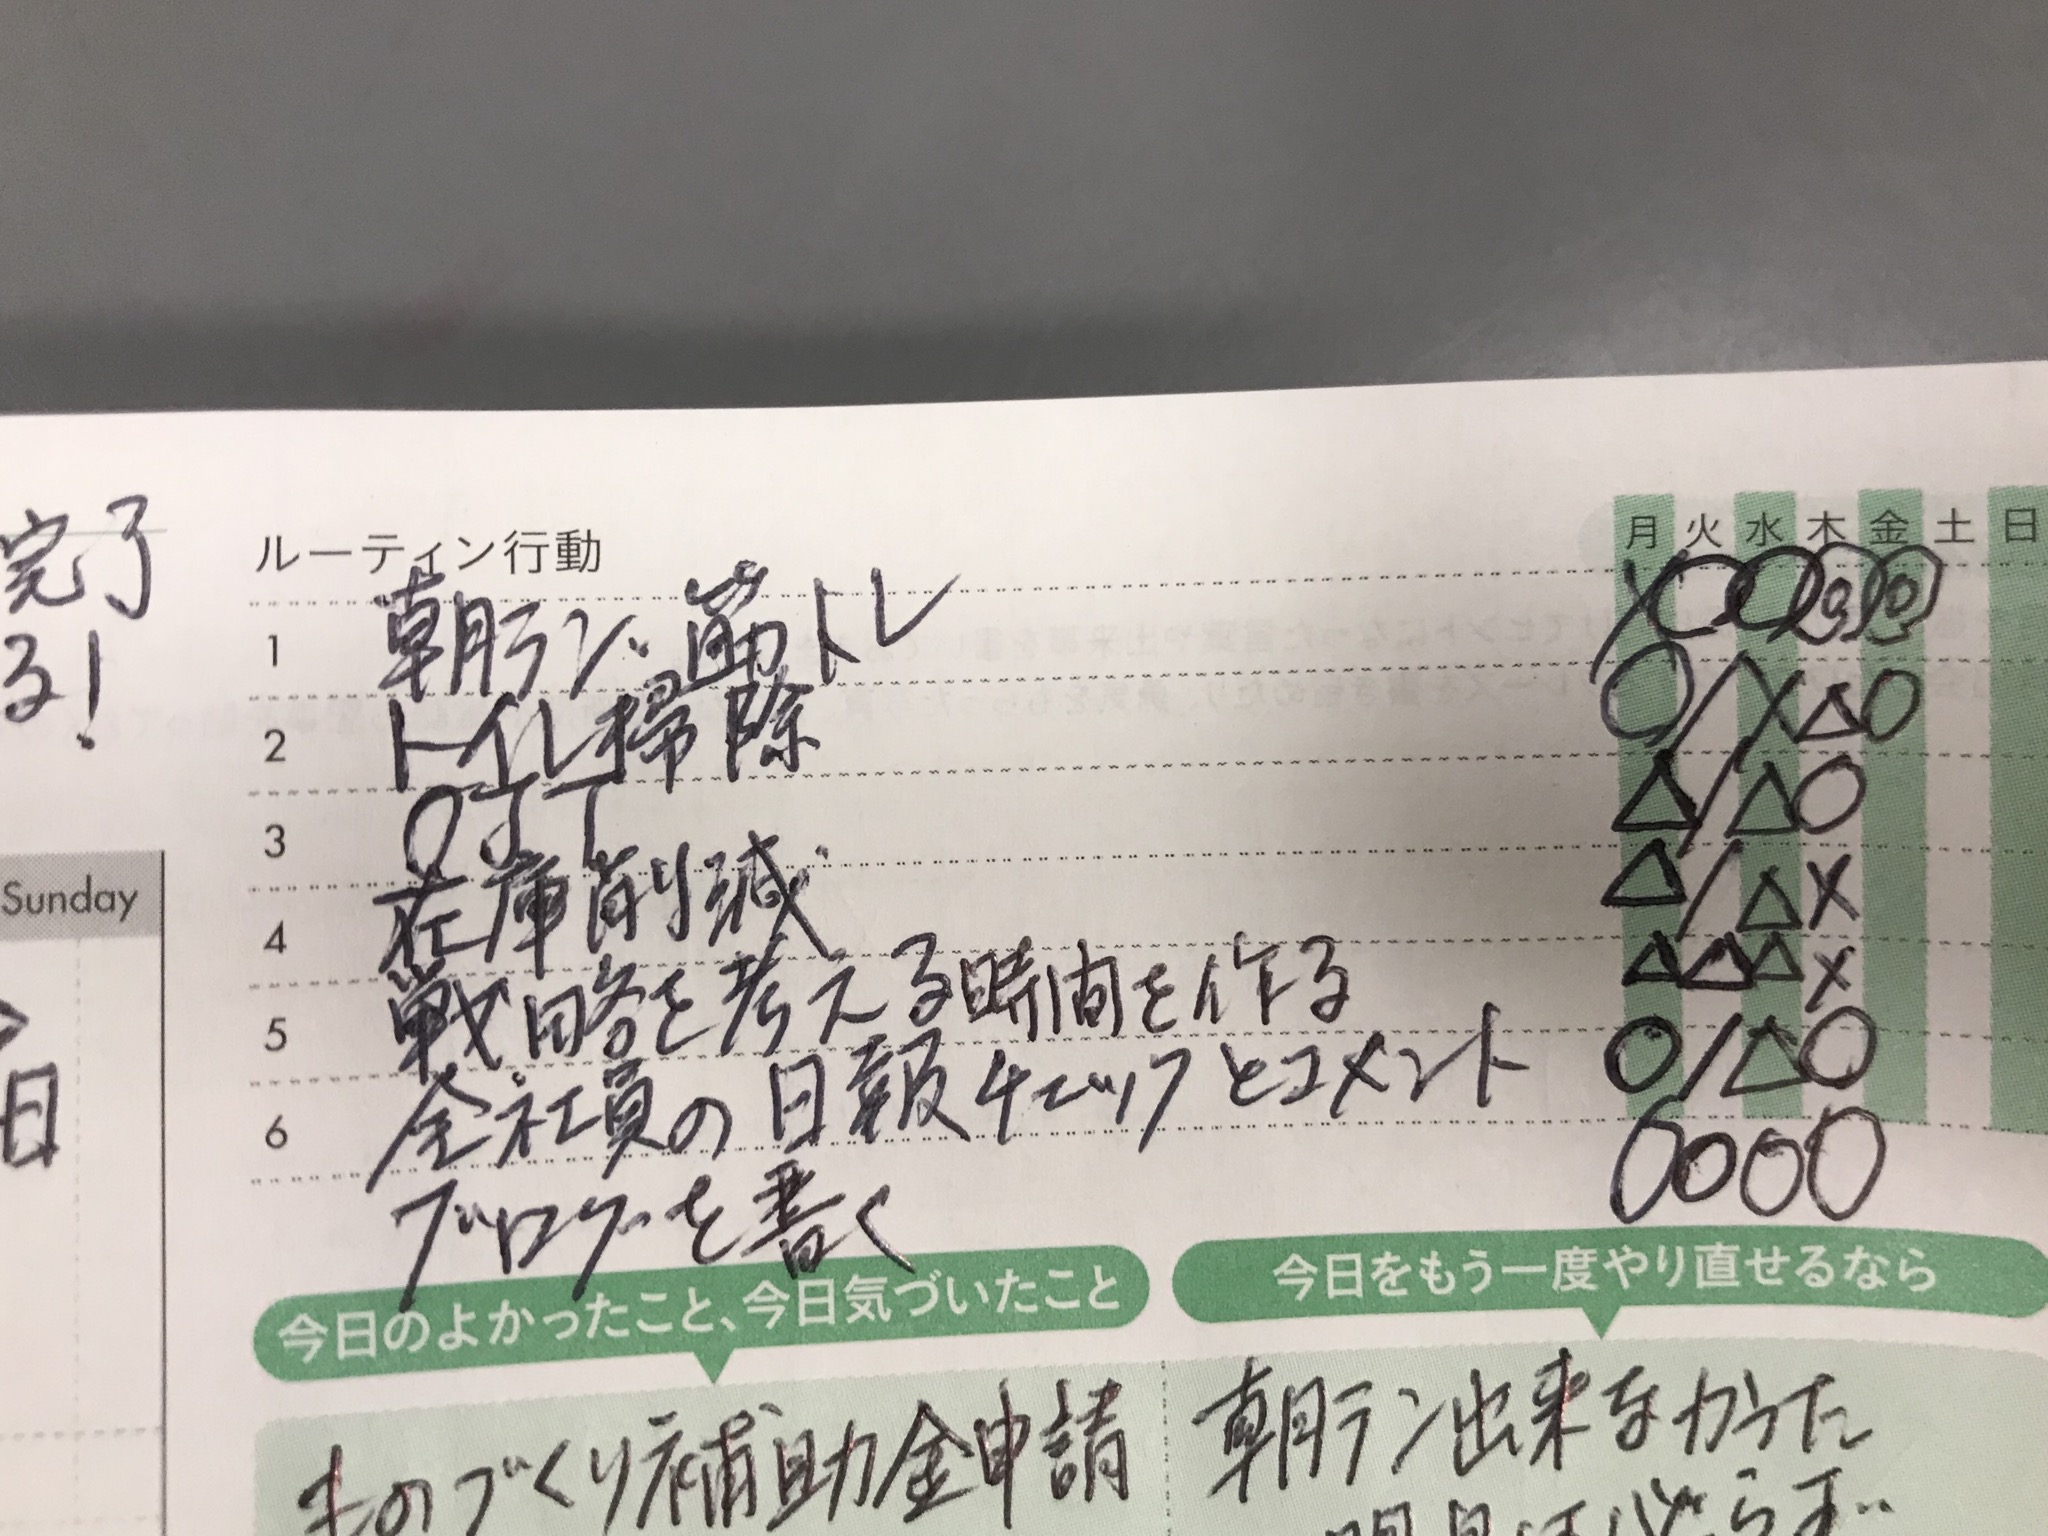 完了
る!
Sunday
日
ルーティン行動 月 火 水 木 金 土 日
1 朝ラン、筋トレ × ○ ○ ◎ ◎
2 トイレ掃除 ○ / × △ ○
3 OJT △ / △ ○
4 在庫削減 △ / △ ×
5 戦略を考える時間を作る △ △ △ ×
6 全社員の日報チェックとコメント ○ / △ ○
ブログを書く ○ ○ ○ ○
今日のよかったこと、今日気づいたこと
今日をもう一度やり直せるなら
ものづくり補助金申請
朝ラン出来なかった
明日は必らず